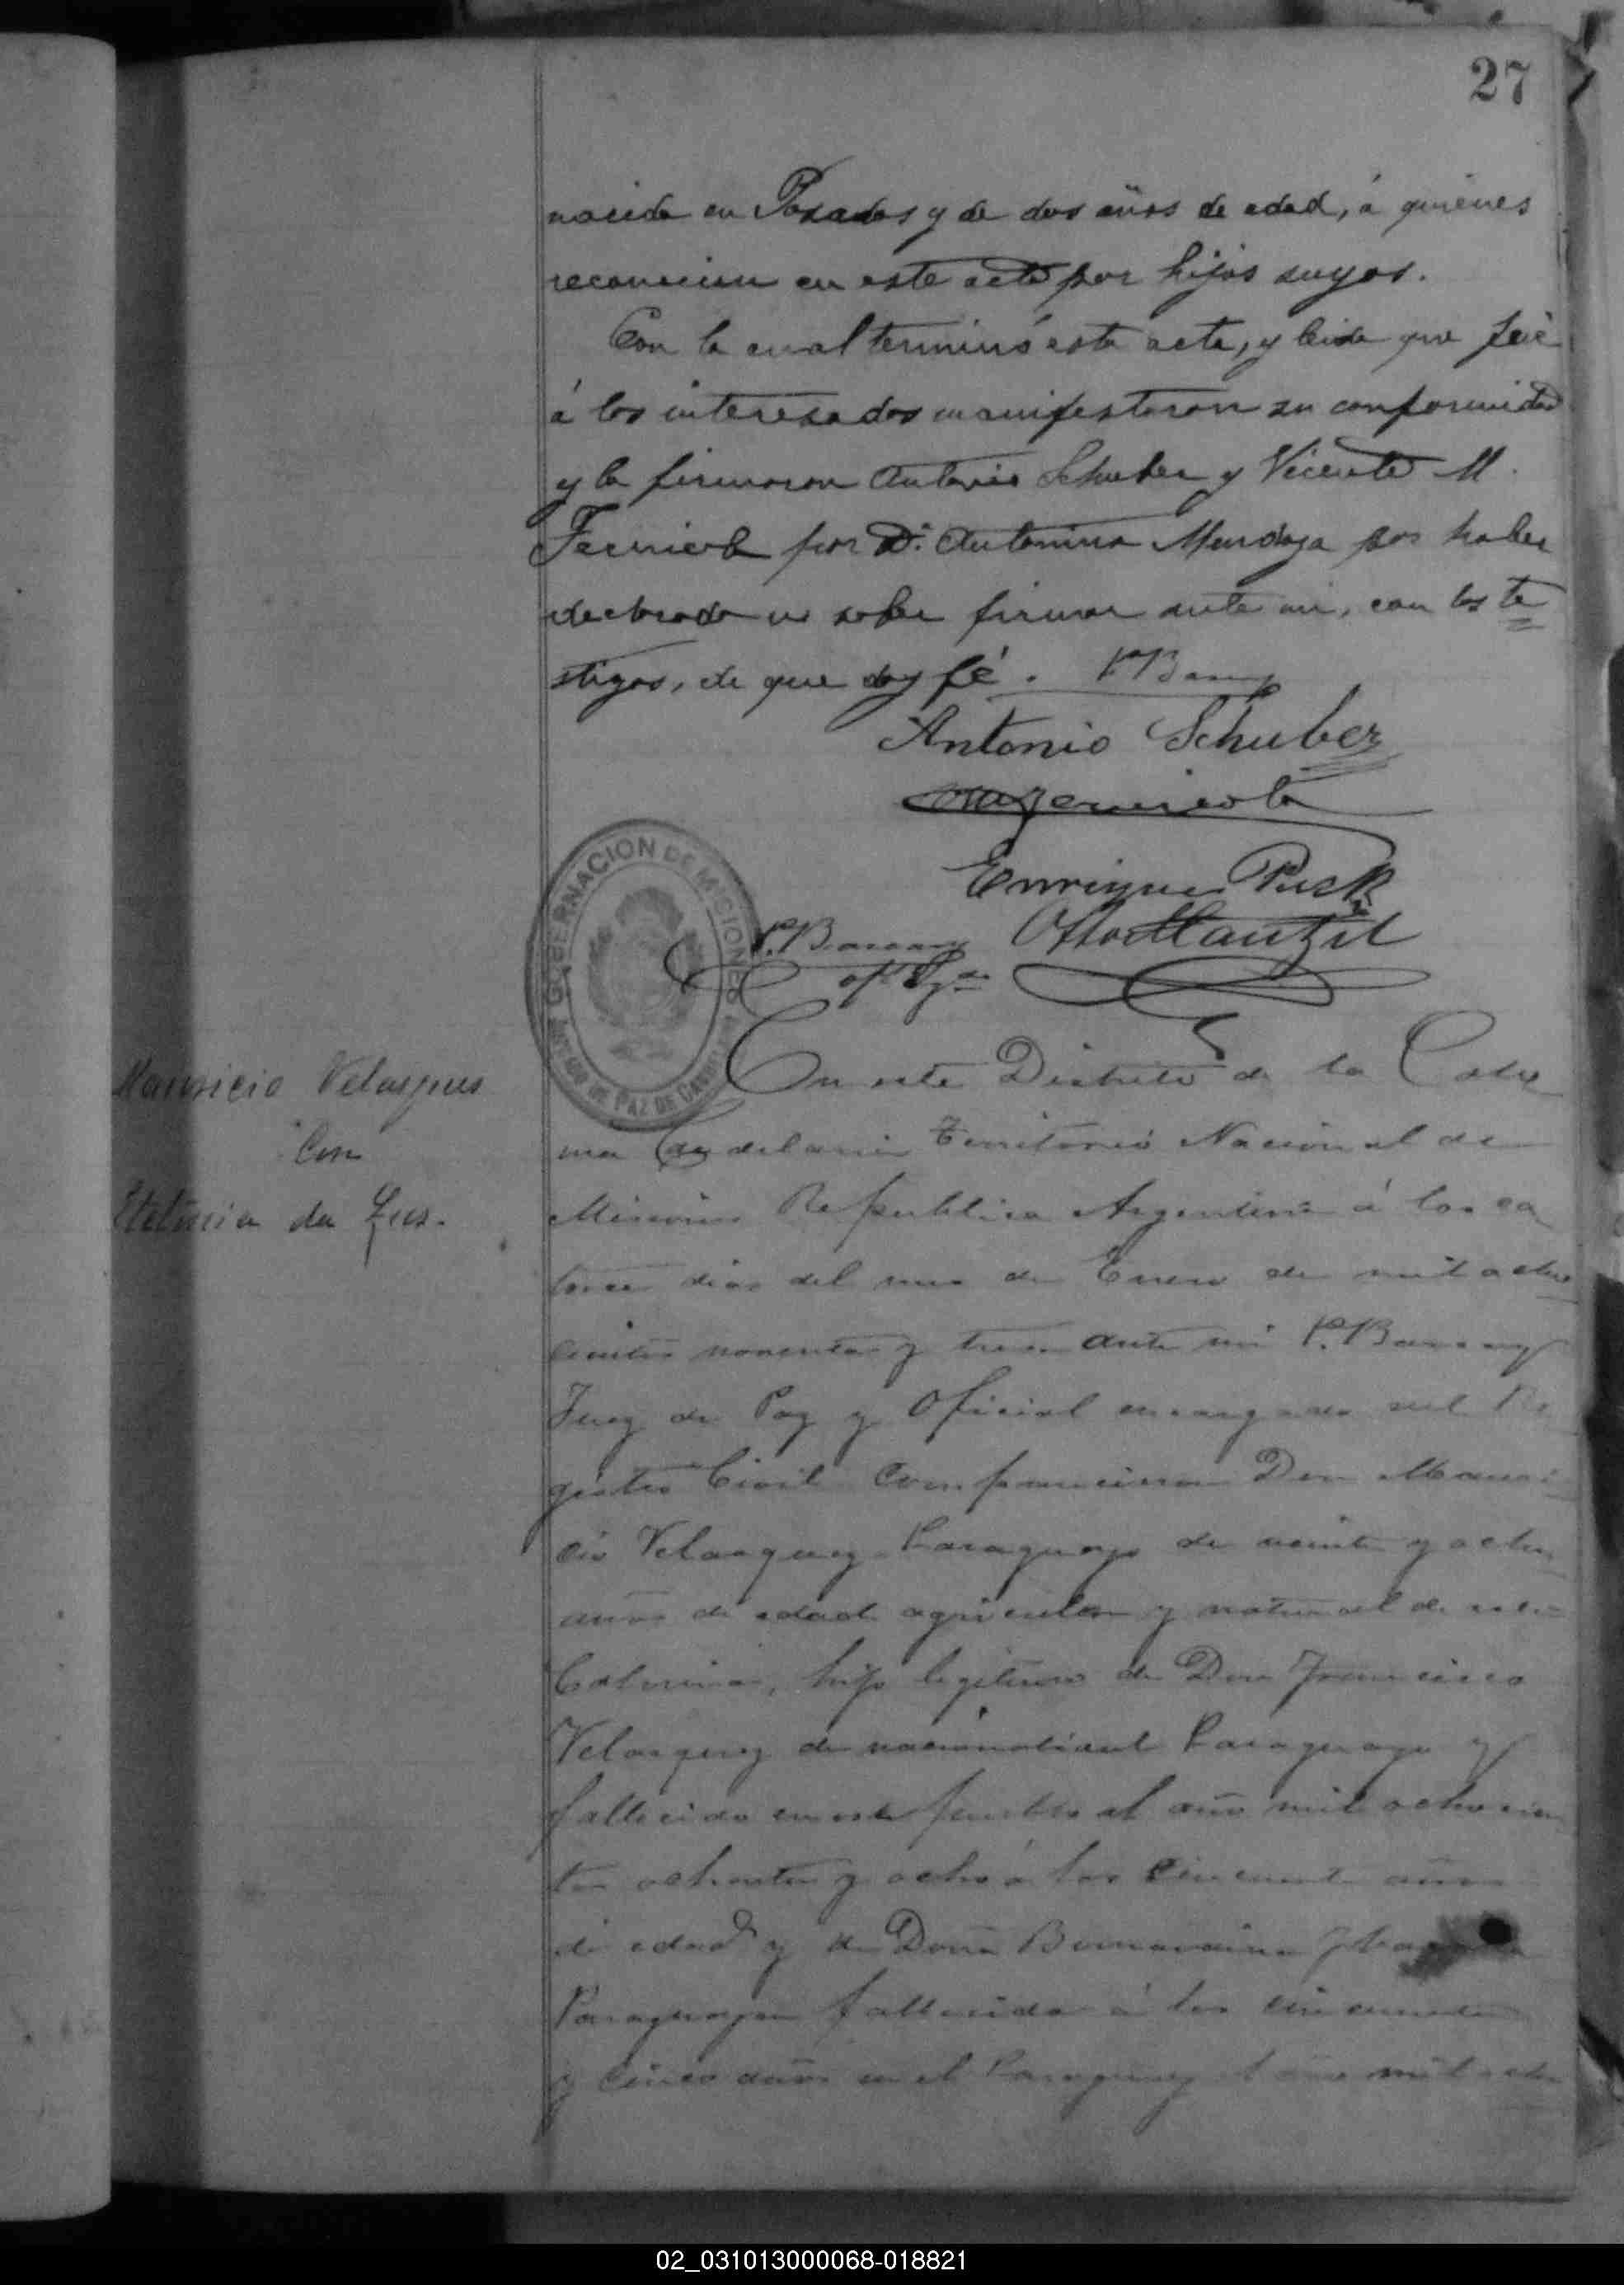 27
nacida en Posadas y de dos años de edad, á quienes
reconocieron en este acto por hijos suyos.
Con lo cual terminó esta acta, y leida que fué
á los interesados manifestaron su conformidad
y la firmaron Antonio Schuber y Vicente M.
por Da. Antonina Mendoza por haber
declarado no saber firmar ante mi, con los te
stigos, de que doy fé.
Antonio Schuber
Enrique Pusk
GOBERNACION DE MISIONES
JUZGADO DE PAZ DE CANDELARIA
Mauricio Velasques
Con
da Luz.
En este Distrito de la Colo
nia Candelaria Territorio Nacional de
Misiones Republica Argentina á los ca
torce dias del mes de Enero de mil ocho
cientos noventa y tres ante mi P.
Juez de Paz y Oficial encargado del Re
gistro Civil Comparecieron Don Mauri
cio Velasquez Paraguayo de veinte y ocho
años de edad agricultor y natural de esta
Colonia, hijo legitimo de Don Francisco
Velasquez de nacionalidad Paraguayo y
fallecido en este pueblo el año mil ochocien
tos ochenta y ocho á los cincuenta años
de edad y de Doña
Paraguaya fallecida á los cincuenta
y cinco años en el Paraguay el año mil ocho
02_031013000068-018821